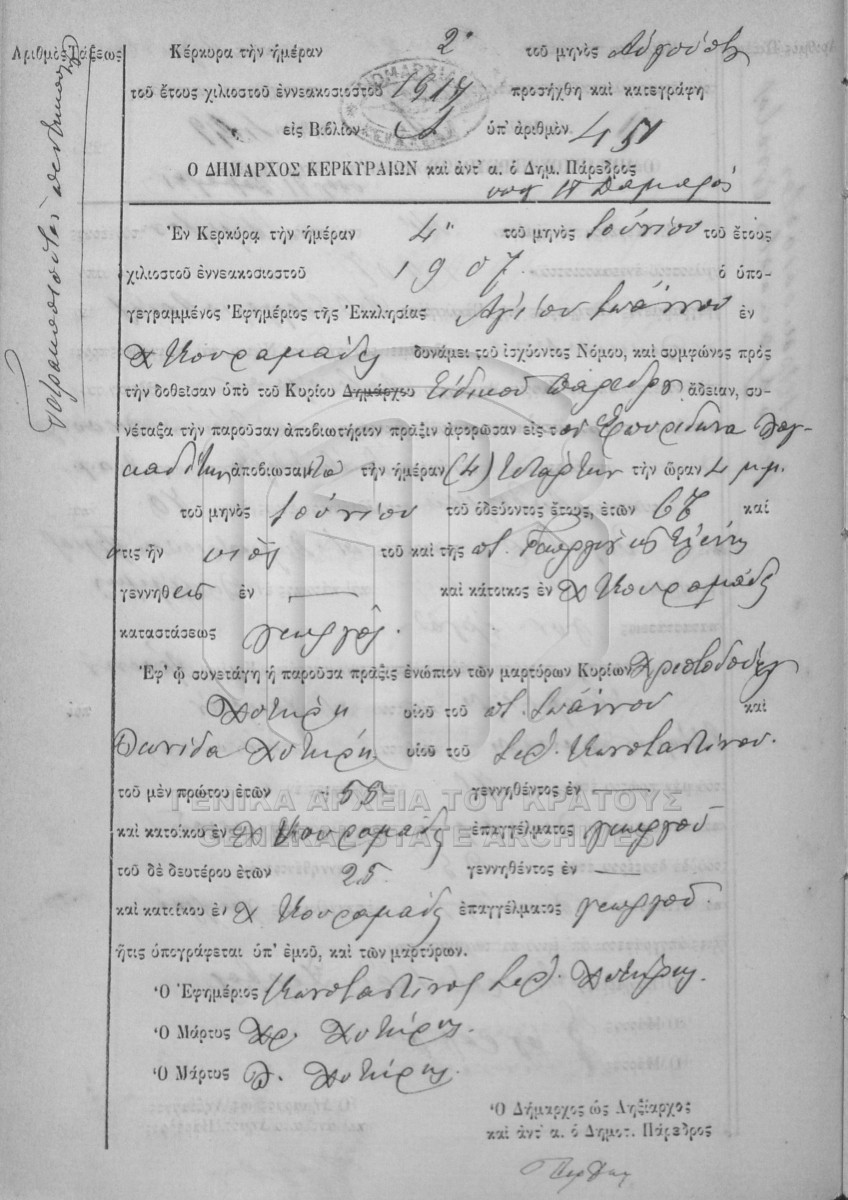 Ἀριθμὸς Τάξεως
Τετρακοσιοστὸς πεντηκοστὸς
Κέρκυρα τὴν ἡμέραν 2α τοῦ μηνὸς Αὐγούστου
τοῦ ἔτους χιλιοστοῦ ἐννεακοσιοστοῦ 1917 προσήχθη καὶ κατεγράφη
εἰς Βιβλίον ὑπ' ἀριθμὸν 451
Ο ΔΗΜΑΡΧΟΣ ΚΕΡΚΥΡΑΙΩΝ καὶ ἀντ' α. ὁ Δημ. Πάρεδρος
Ἐν Κερκύρᾳ τὴν ἡμέραν 4η τοῦ μηνὸς Ἰουνίου τοῦ ἔτους
χιλιοστοῦ ἐννεακοσιοστοῦ 1907 ὁ ὑπο-
γεγραμμένος Ἐφημέριος τῆς Ἐκκλησίας Ἁγίου Ἰωάννου ἐν
χ Κουραμάδες δυνάμει τοῦ ἰσχύοντος Νόμου, καὶ συμφώνος πρὸς
τὴν δοθεῖσαν ὑπὸ τοῦ Κυρίου Δημάρχου Εἰδικοῦ Παρέδρου ἄδειαν, συ-
νέταξα τὴν παροῦσαν ἀποβιωτήριον πρᾶξιν ἀφορῶσαν εἰς τὸν Σπυρίδωνα Λαγ-
καδίτην ἀποβιώσαντα τὴν ἡμέραν (4) Τετάρτην τὴν ὥραν 4 μ.μ.
τοῦ μηνὸς Ἰουνίου τοῦ ὁδεύοντος ἔτους, ἐτῶν 67 καὶ
ὅστις ἦν υἱὸς τοῦ καὶ τῆς π. Γεωργίου καὶ Ἑλένης
γεννηθεὶς ἐν — καὶ κάτοικος ἐν χ Κουραμάδες
καταστάσεως γεωργός.
Ἐφ' ᾧ συνετάγη ἡ παροῦσα πρᾶξις ἐνώπιον τῶν μαρτύρων Κυρίων Χριστοδούλου
Χυτήρη υἱοῦ τοῦ π. Ἰωάννου καὶ
Λεωνίδα Χυτήρη υἱοῦ τοῦ Ἱερ. Κωνσταντίνου.
τοῦ μὲν πρώτου ἐτῶν 55 γεννηθέντος ἐν —
ΓΕΝΙΚΑ ΑΡΧΕΙΑ ΤΟΥ ΚΡΑΤΟΥΣ
καὶ κατοίκου ἐν χ Κουραμάδες ἐπαγγέλματος γεωργοῦ
GENERAL STATE ARCHIVES
τοῦ δὲ δευτέρου ἐτῶν 25 γεννηθέντος ἐν —
καὶ κατοίκου ἐν χ Κουραμάδες ἐπαγγέλματος γεωργοῦ.
ἥτις ὑπογράφεται ὑπ' ἐμοῦ, καὶ τῶν μαρτύρων.
Ὁ Ἐφημέριος Κωνσταντῖνος Ἱερ. Χυτήρης.
Ὁ Μάρτυς Χρ. Χυτήρης.
Ὁ Μάρτυς Λ. Χυτήρης.
Ὁ Δήμαρχος ὡς Ληξίαρχος
καὶ ἀντ' α. ὁ Δημοτ. Πάρεδρος